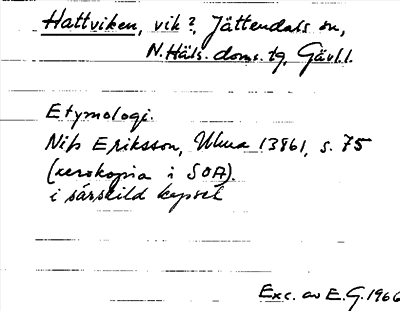 Hattviken, vik?, Jättendals sn,
N.Häls. doms. tg, Gävl.l.
Etymologi.
Nils Eriksson, Ulma 13861, s. 75
(xerokopia i SOA).
i särskild kapsel
Exc. av E.G. 1966